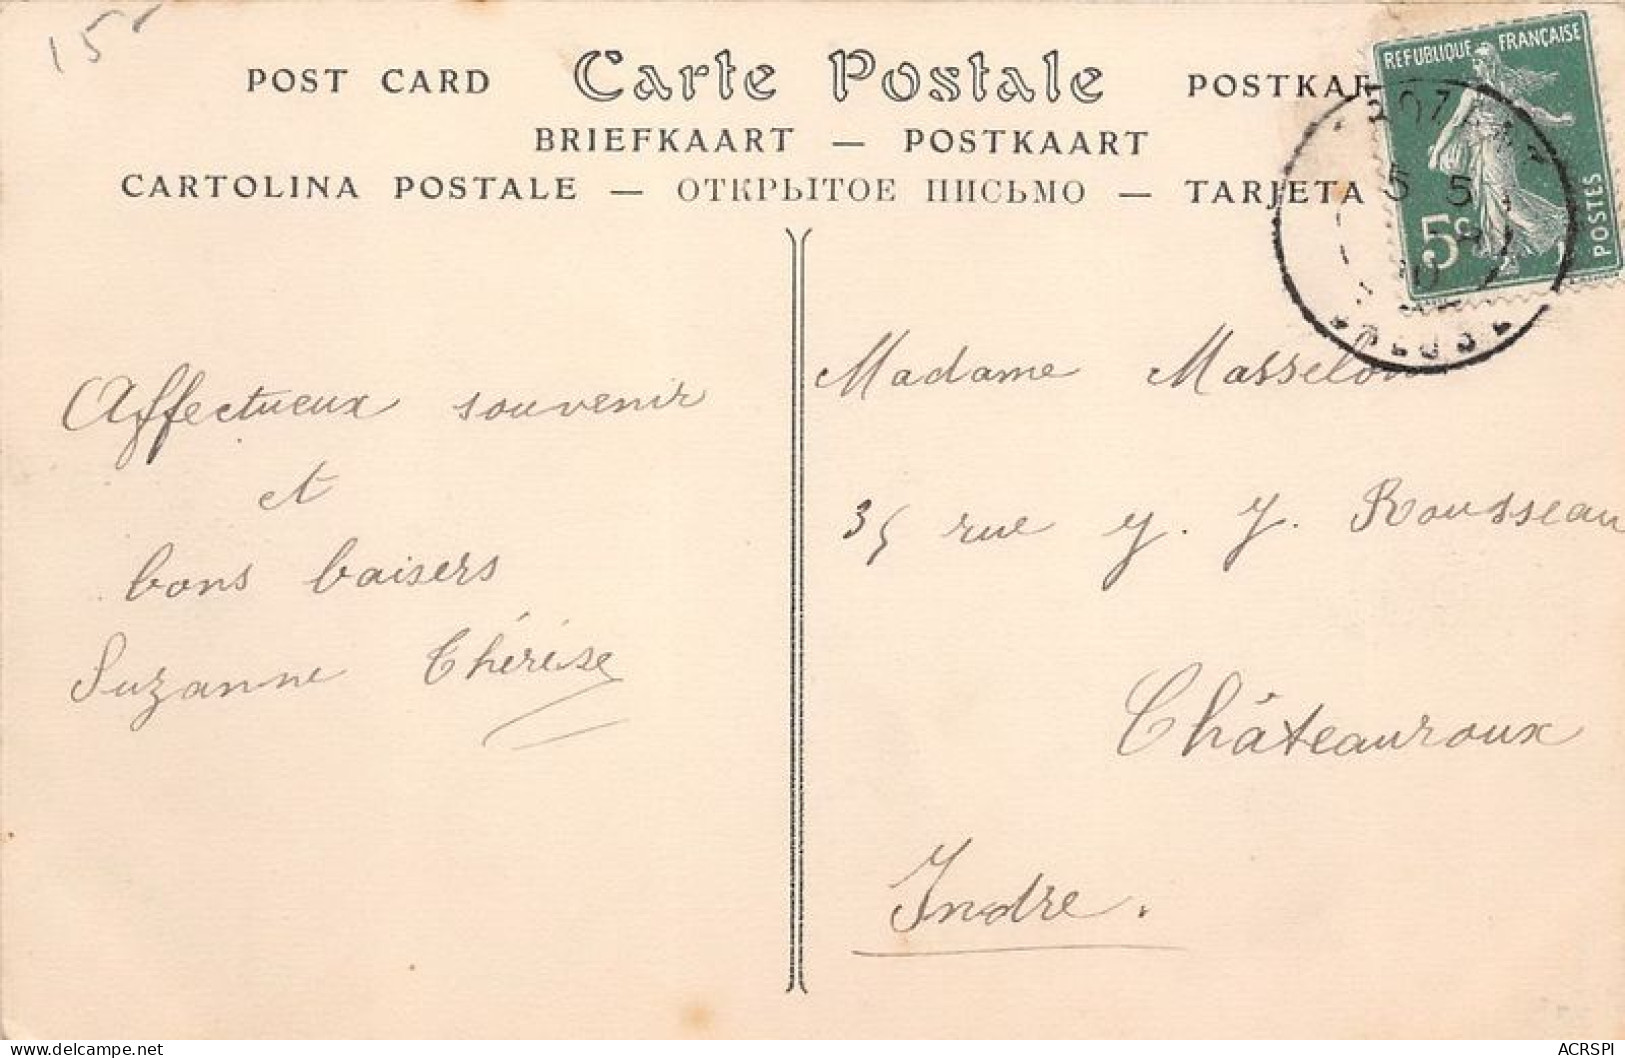 15
POST CARD Carte Postale POSTKAR
BRIEFKAART — POSTKAART
CARTOLINA POSTALE — ОТКРЫТОЕ ПИСЬМО — TARJETA
REPUBLIQUE FRANÇAISE
5c
POSTES
5 5
Affectueux souvenir
et
bons baisers
Suzanne Thérèse
Madame Masselon
35 rue J. J. Rousseau
Châteauroux
Indre.
delcampe.net
ACRSPI